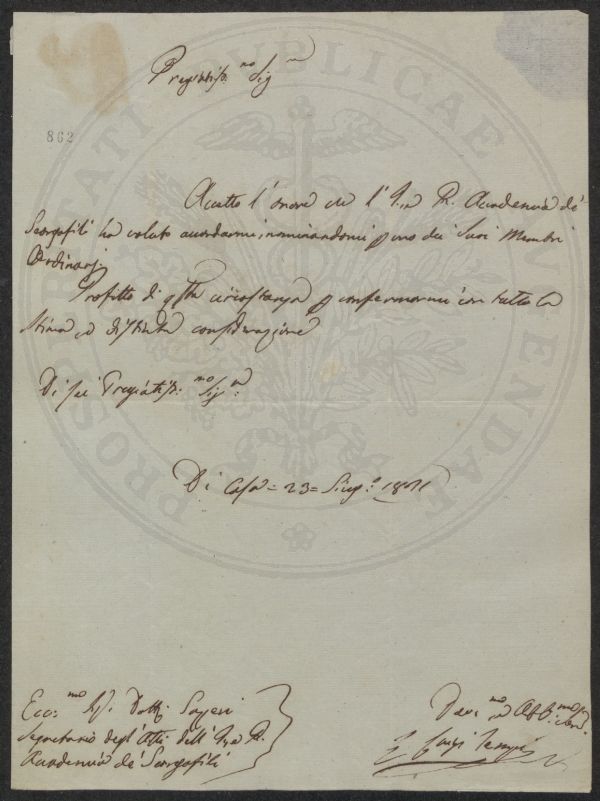 Pregiatiss.mo Sig.re
862
Accetto l'onore che l'I. e R. Accademia de'
Georgofili ha voluto accordarmi, nominandomi p uno dei Suoi Membri
Ordinarj.
Profitto di q.sta circostanza p confermarmi con tutta la
stima, e distinta considerazione
Di Lei Pregiatiss.mo Sig.re
Di Casa = 23 = Giug.o
Ecc.mo Sig. Dott.
Segretario degl'Atti dell'I. e R.
Accademia de' Georgofili
Dev.mo Obb.mo Serv.
Luigi Tempi
PROSPERITATI PUBLICAE AUGENDAE